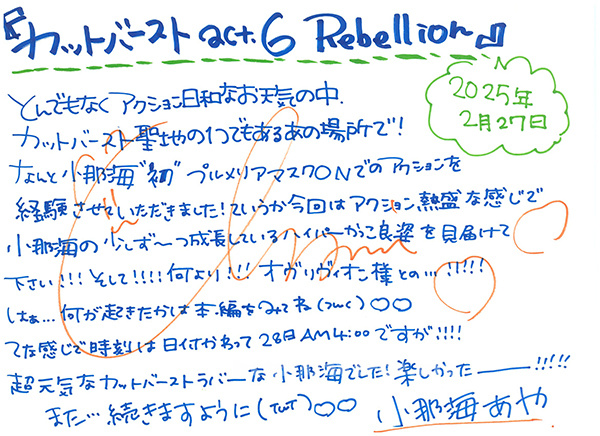 『カットバースト act.6 Rebellion』
2025年
2月27日
とんでもなくアクション日和なお天気の中、
カットバースト聖地の1つでもあるあの場所で！
なんと小那海"初"プルメリアマスクONでのアクションを
経験させていただきました！ていうか今回はアクション熱盛な感じで
小那海の少しず〜つ成長しているハイパーかっこ良姿を見届けて
下さい!!! そして!!!! 何より!!! オヴリヴィオン様との…!!!!!
はぁ…何が起きたかは本編をみてね(TωT)○○
てな感じで時刻は日付かわって28日AM4:00ですが!!!!
超元気なカットバーストラバーな小那海でした！楽しかったーー!!!!!
また…続きますように(TωT)○○
小那海あや